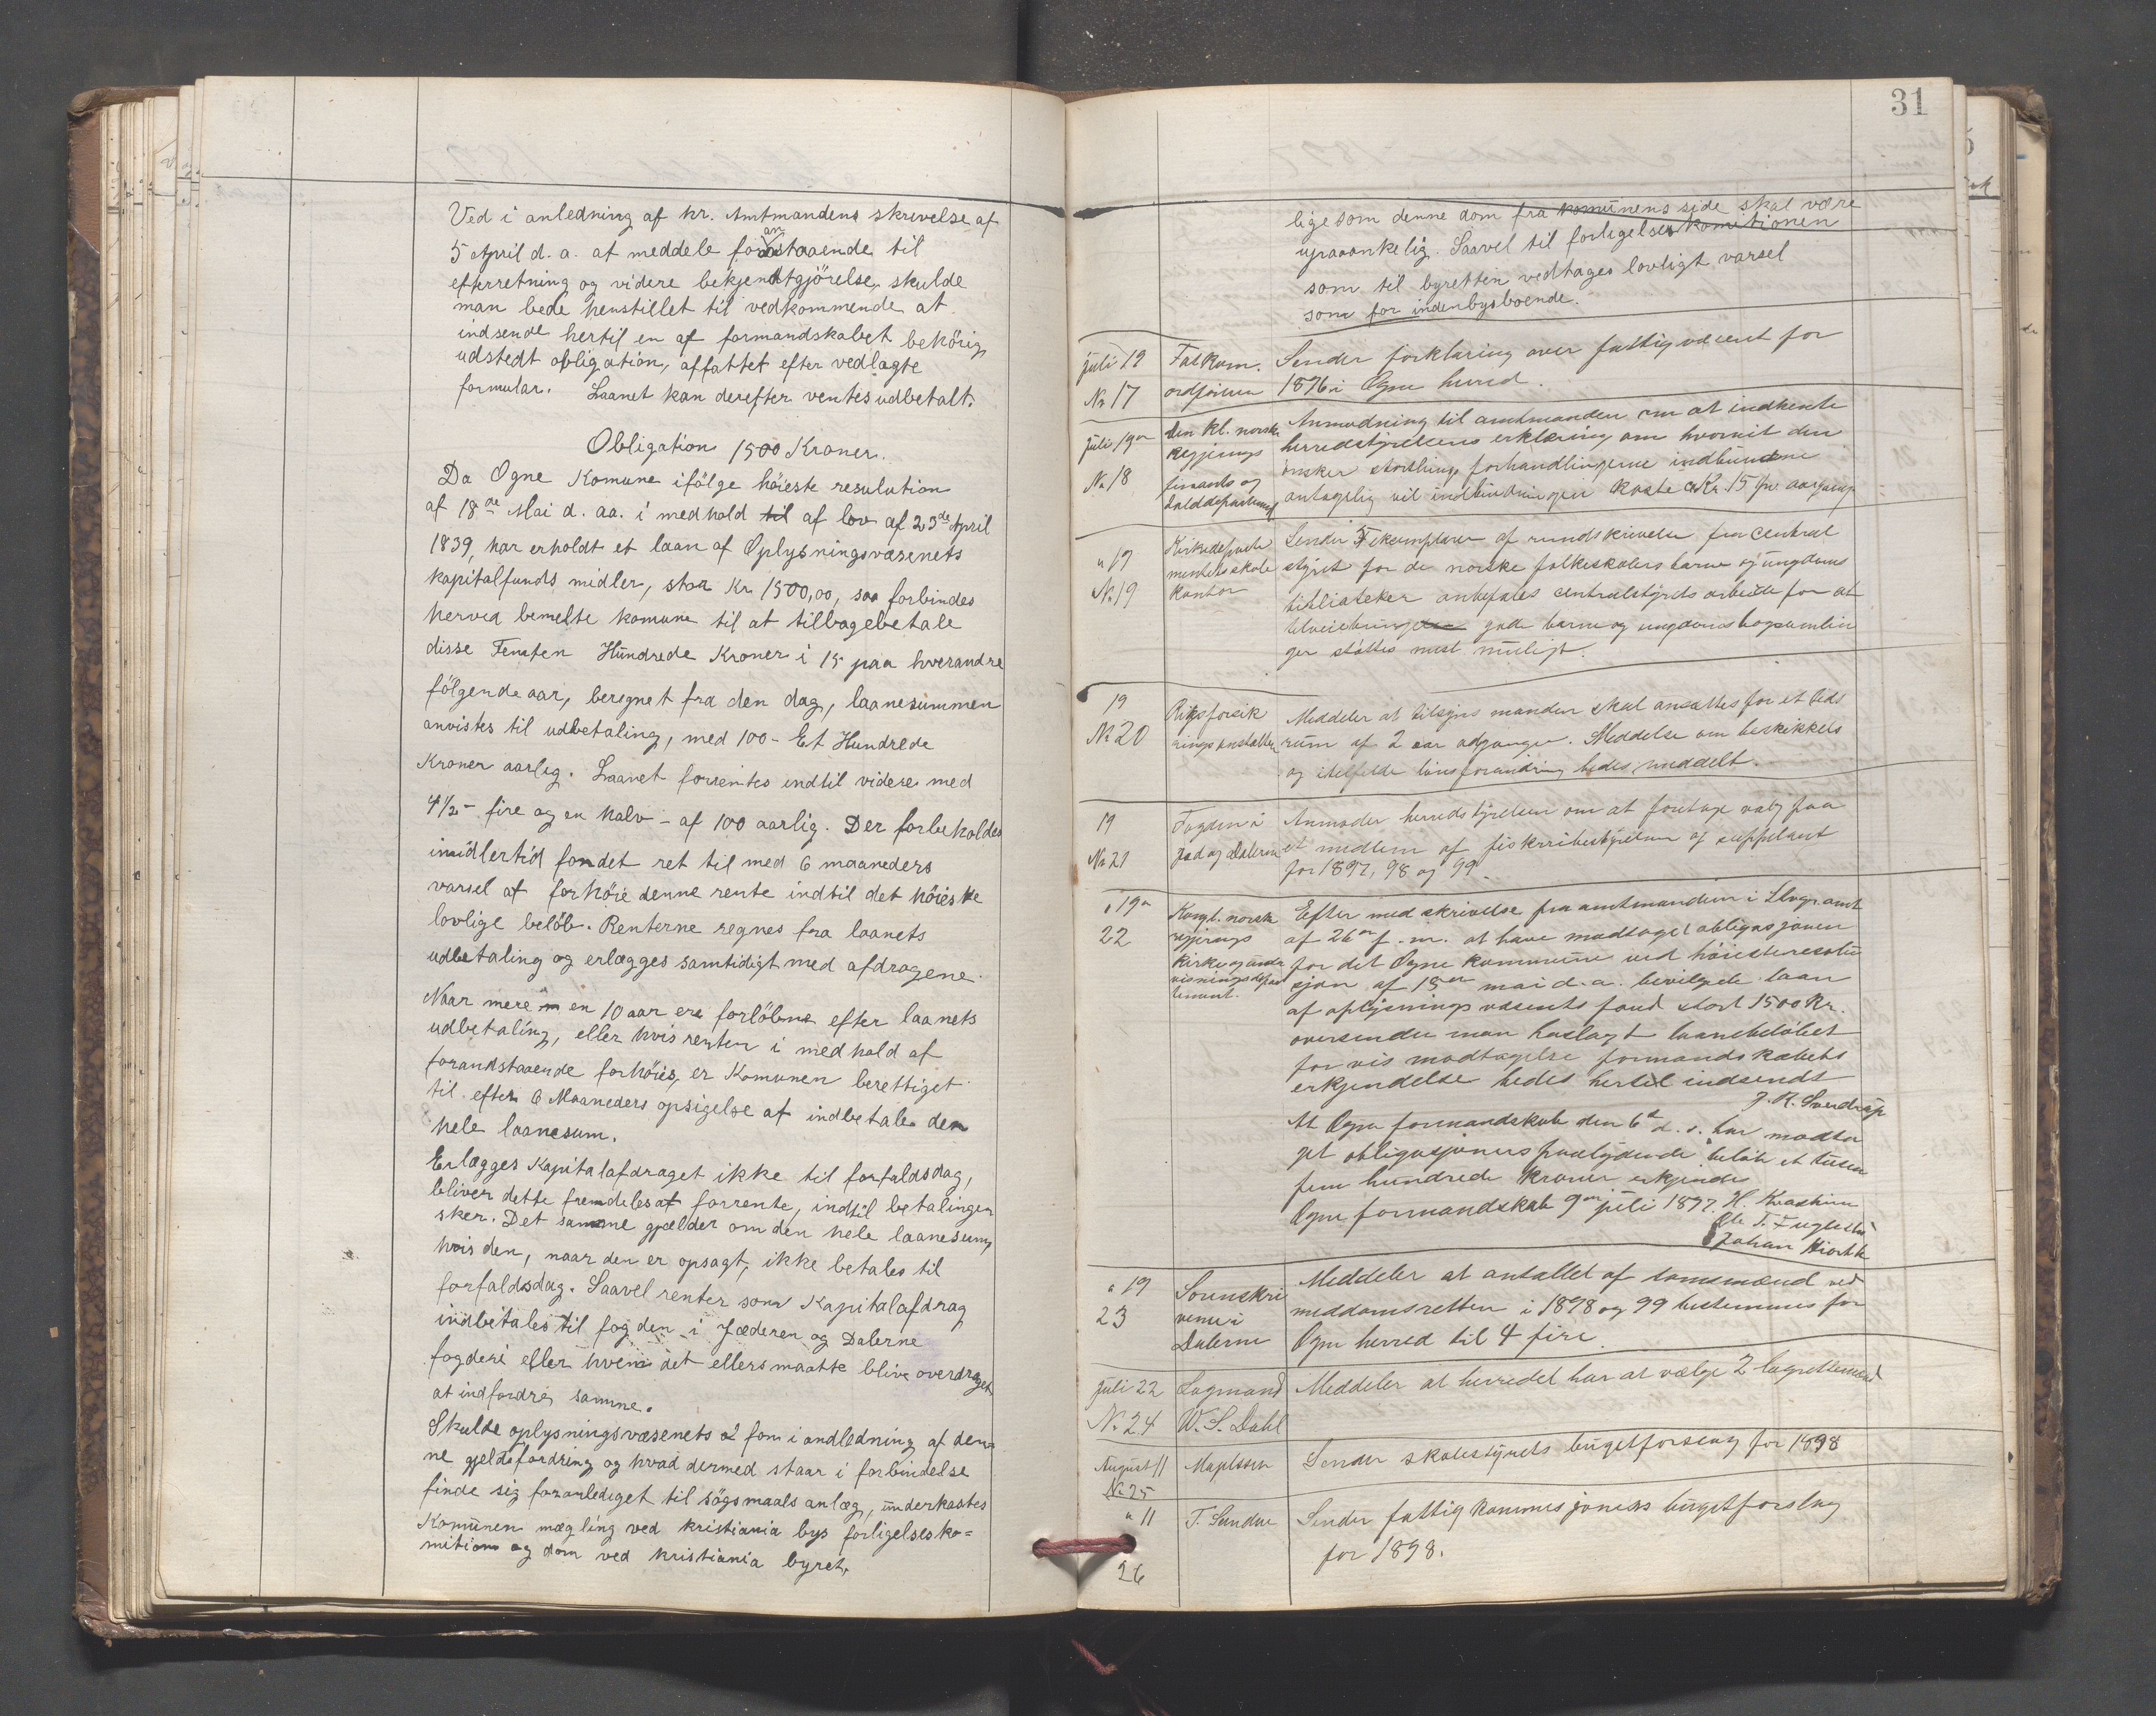 Ved i anledning af hr. Amtmandens skrivelse af
5 April d. a. at meddele foranstaaende til
efterretning og videre bekjendtgjörelse, skulde
man bede henstillet til vedkommende at
indsende hertil en af formandskabet behörig
udstedt obligation, affattet efter vedlagte
formular. Laanet kan derefter ventes udbetalt.
Obligation 1500 Kroner.
Da Ogne Komune ifölge höieste resulution
af 18de Mai d. aa. i medhold til af lov af 23de April
1839, har erholdt et laan af Oplysningsvæsenets
kapitalfunds midler, stor Kr. 1500,00, saa forbindes
herved bemelte komune til at tilbagebetale
disse Femten Hundrede Kroner i 15 paa hverandre
fölgende aar, beregnet fra den dag, laanesummen
anvistes til udbetaling, med 100 - Et Hundrede
Kroner aarlig. Laanet forrentes indtil videre med
4½ - fire og en halv - af 100 aarlig. Der forbeholdes
imidlertid fondet ret til med 6 maaneders
varsel at forhöie denne rente indtil det höieste
lovlige belöb. Renterne regnes fra laanets
udbetaling og erlægges samtidigt med afdragene.
Naar mere en 10 aar ere forlöbne efter laanets
udbetaling, eller hvis renten i medhold af
foranstaaende forhöies, er Komunen berettiget
til efter 6 Maaneders opsigelse at indbetale den
hele laanesum.
Erlægges Kapitalafdraget ikke til forfaldsdag,
bliver dette fremdeles at forrente, indtil betalingen
sker. Det samme gjælder om den hele laanesum,
hvis den, naar den er opsagt, ikke betales til
forfaldsdag. Saavel renter som Kapitalafdrag
indbetales til fogden i Jæderen og Dalerne
fogderi eller hvem det ellers maatte blive overdraget
at indfordre samme.
Skulde oplysningsvæsenets fom i andledning af den-
ne gjeldsfordring og hvad dermed staar i forbindelse
finde sig foranlediget til sögsmaals anlæg, underkastes
Komunen mægling ved kristiania bys forligelsesko=
mition og dom ved kristiania byret,
31
lige som denne dom fra komunens side skal være
upaaankelig. Saavel til forligelseskomitionen
som til byretten vedtages lovligt varsel
som for indenbysboende.
juli 19 Fatkom. Sender forklaring over fattigvæcent for
No 17 ordförer 1896 i Ogne herred.
juli 19en den kl. norske Anmodning til amtmanden om at indhente
regjerings herredstyrelsens erklæring om hvorvit den
No 18 finants og önsker storthings forhandlingerne indbundne
tolddepartement antagelig vil indbindningen koste Kr. 15 pr aargang
" 19 Kirkedeparte Sender 5 eksemplarer af rundskrivelse fra central
mentets skole styret for de norske folkeskolers barne og ungdoms
No 19 kontor bibliateker anbefales centralstyrets arbeide for at
tilveiebringe gode barne og ungdoms bogsamlin
ger støttes mest muligt.
19 Rigsforsik Meddeler at tilsyns manden skal ansættes for et tids
No 20 ringsanstalten rum af 2 aar adgangen. Meddelse om beskikkels
og itilfelde lönsforandring bedes meddelt.
19 Fogden i Anmoder herredstyrelsen om at foretage valg paa
No 21 Jæd og Dalerne et medlem af fiskeribestyrelsen og supplant
for 1897, 98 og 99.
" 19en Kongl. norske Efter med skrivelse fra amtmanden i Stvgr. amt
22 regjerings af 26en f. m. at have modtaget obligasjonen
kirke og under for det Ogne kommune ved höiesteresolu
visningsdepar sjon af 18en mai d. a. bevilgede laan
tement. af oplysnings væsents fond stort 1500 Kr.
oversender man hoslagt laanebelöbet
for vis modtagelse formandskabets
erkjendelse bedes hertil indsendt
J. R. Sverdrup
At Ogne formandskab den 6te d. s. har modta
get obligasjonens paalydende belöb et tusen
fem hundrede kroner erkjendes
Ogne formandskab 9en juli 1897. H.
Ole T. Fuglestad
Johan
" 19 Sorenskri Meddeler at antallet af domsmænd ved
23 veren i meddomsretten i 1898 og 99 bestemmes for
Dalerne Ogne herred til 4 fire
juli 22 Lagmand Meddeler at herredet har at vælge 2 lagrettemænd
No 24 W. S. Dahl
August 11 Sender skolestyrets bugetforslag for 1898
No 25
" 11 T. Sendar Sender fattigkommisjonens bugetforslag
26 for 1898.